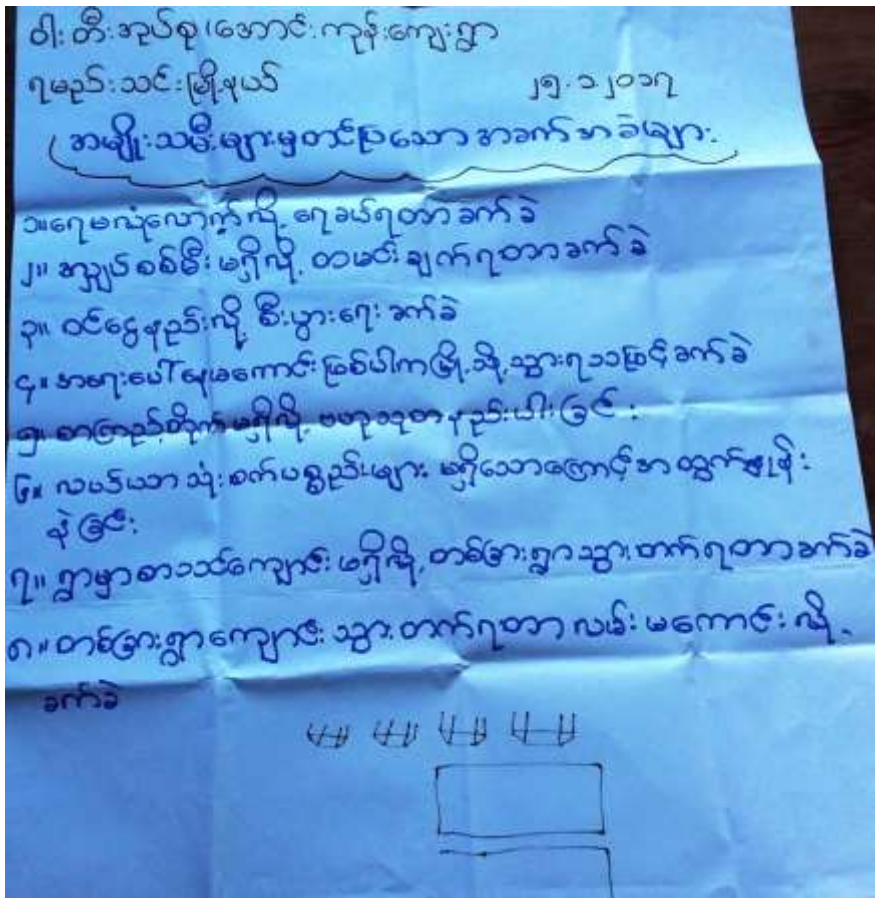 ဝါးတီးအုပ်စု၊အောင်ကုန်းကျေးရွာ
ရမည်းသင်းမြို့နယ် ၂၅.၁.၂၀၁၇
အမျိုးသမီးများမှတင်ပြသောအခက်အခဲများ
၁။ရေမလုံလောက်လို့ ရေခပ်ရတာခက်ခဲ
၂။ လျှပ်စစ်မီး မရှိလို့ ထမင်းချက်ရတာခက်ခဲ
၃။ ဝင်ငွေနည်းလို့ စီးပွားရေး ခက်ခဲ
၄။ အရေးပေါ်နေမကောင်းဖြစ်ပါကမြို့သို့သွားရသဖြင့်ခက်ခဲ
၅။ စာကြည့်တိုက်မရှိလို့ ဗဟုသုတနည်းပါးခြင်း
၆။ လယ်ယာသုံးစက်ပစ္စည်းများ မရှိသောကြောင့်အထွက်နှုန်း
နဲခြင်း
၇။ ရွာမှာစာသင်ကျောင်း မရှိလို့ တစ်ခြားရွာသွားတက်ရတာခက်ခဲ
၈။ တစ်ခြားရွာကျောင်းသွားတက်ရတာ လမ်းမကောင်းလို့
ခက်ခဲ